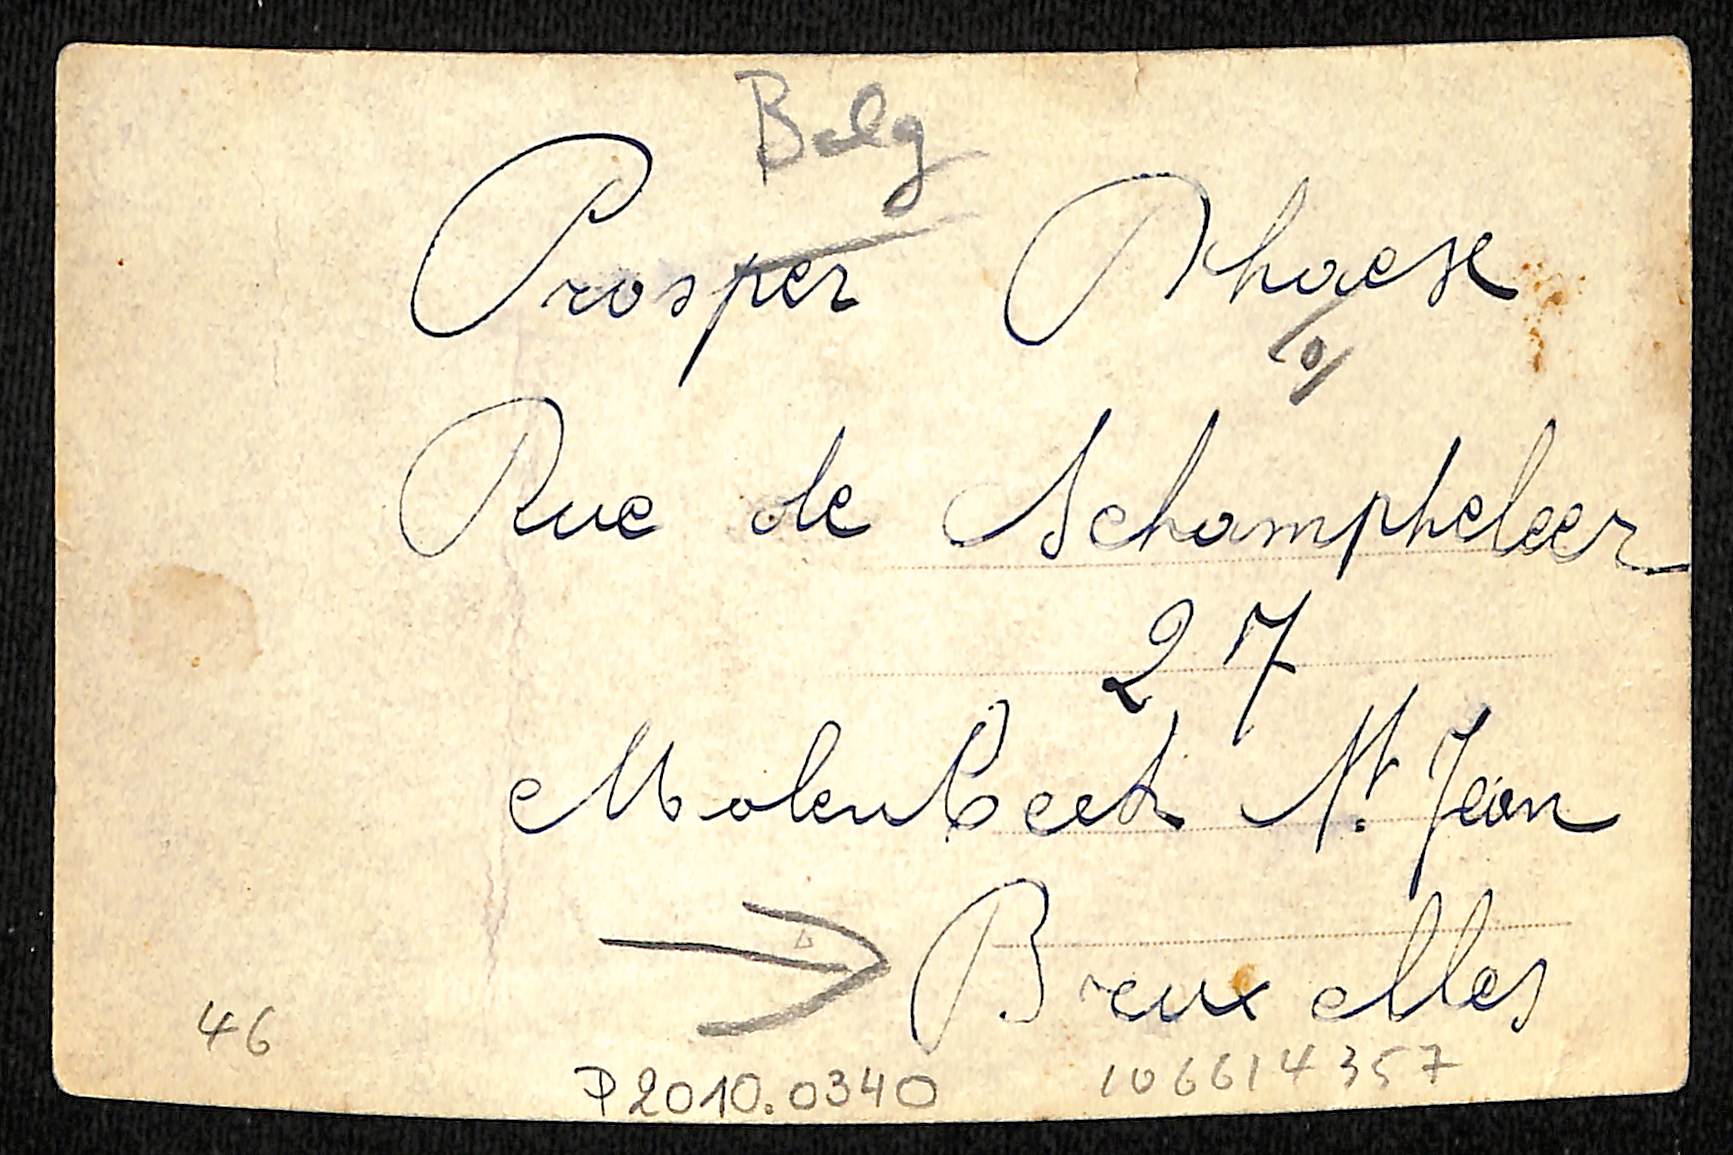 Belg
Prosper
Rue de Schampheleer
27
Molenbeek St. Jean
Bruxelles
46
P2010.0340
106614357